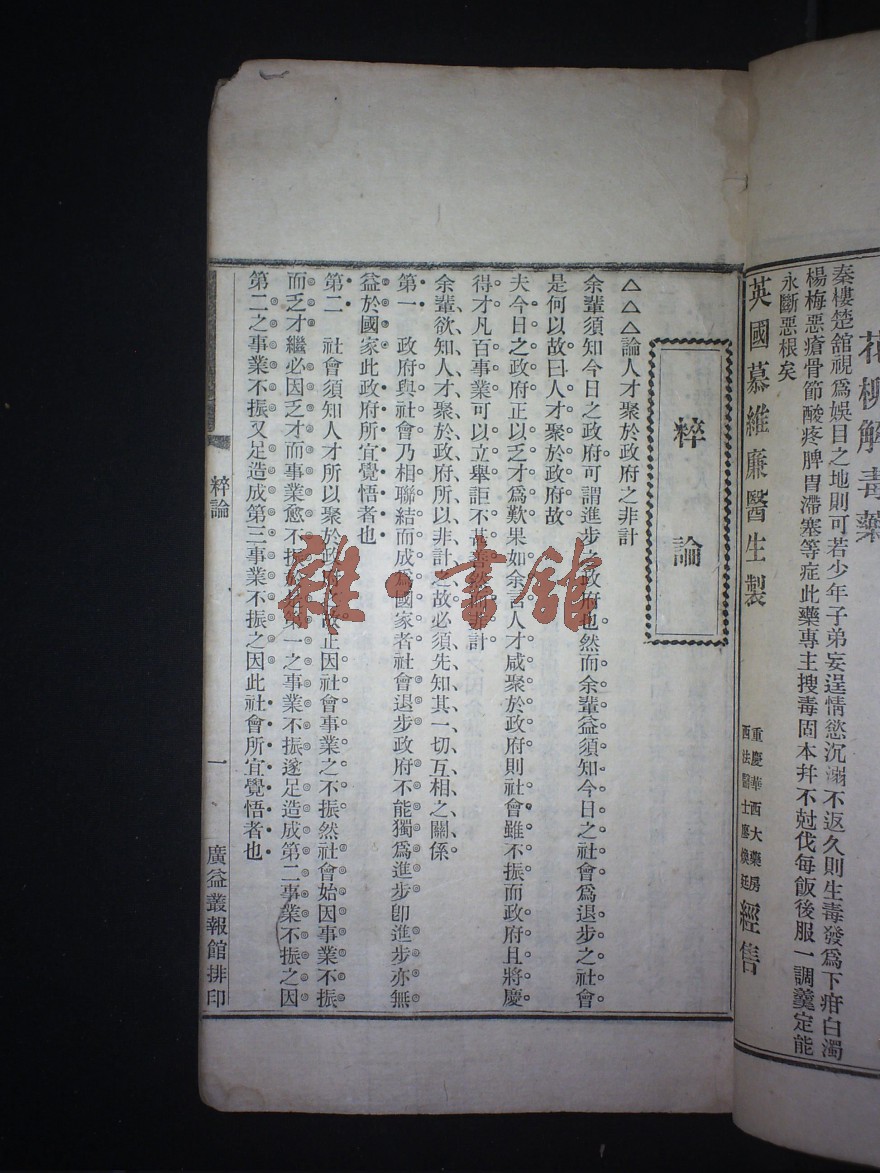 花柳解毒藥
秦樓楚舘視爲娛目之地則可若少年子弟妄逞情慾沉溺不返久則生毒發爲下疳白濁
楊梅惡瘡骨節酸疼脾胃滯塞等症此藥專主搜毒固本幷不尅伐每飯後服一調羹定能
永斷惡根矣
英國慕維廉醫生製
重慶華西大藥房
西法醫士廖煥廷
經售
粹論
△△△論人才聚於政府之非計
余輩須知今日之政府可謂進步之政府也然而余輩益須知今日之社會爲退步之社會
是何以故曰人才聚於政府故
夫今日之政府正以乏才爲歎果如余言人才咸聚於政府則社會雖不振而政府且將慶
得才凡百事業可以立舉詎不甚善然而非計
余輩欲知人才聚於政府所以非計之故必須先知其一切互相之關係
第一 政府與社會乃相聯結而成爲國家者社會退步政府不能獨爲進步卽進步亦無
益於國家此政府所宜覺悟者也
第二 社會須知人才所以聚於政府之故正因社會事業之不振然社會始因事業不振
而乏才繼必因乏才而事業愈不振第一之事業不振遂足造成第二事業不振之因
第二之事業不振又足造成第三事業不振之因此社會所宜覺悟者也
粹論
一
廣益叢報館排印
雜·書舘